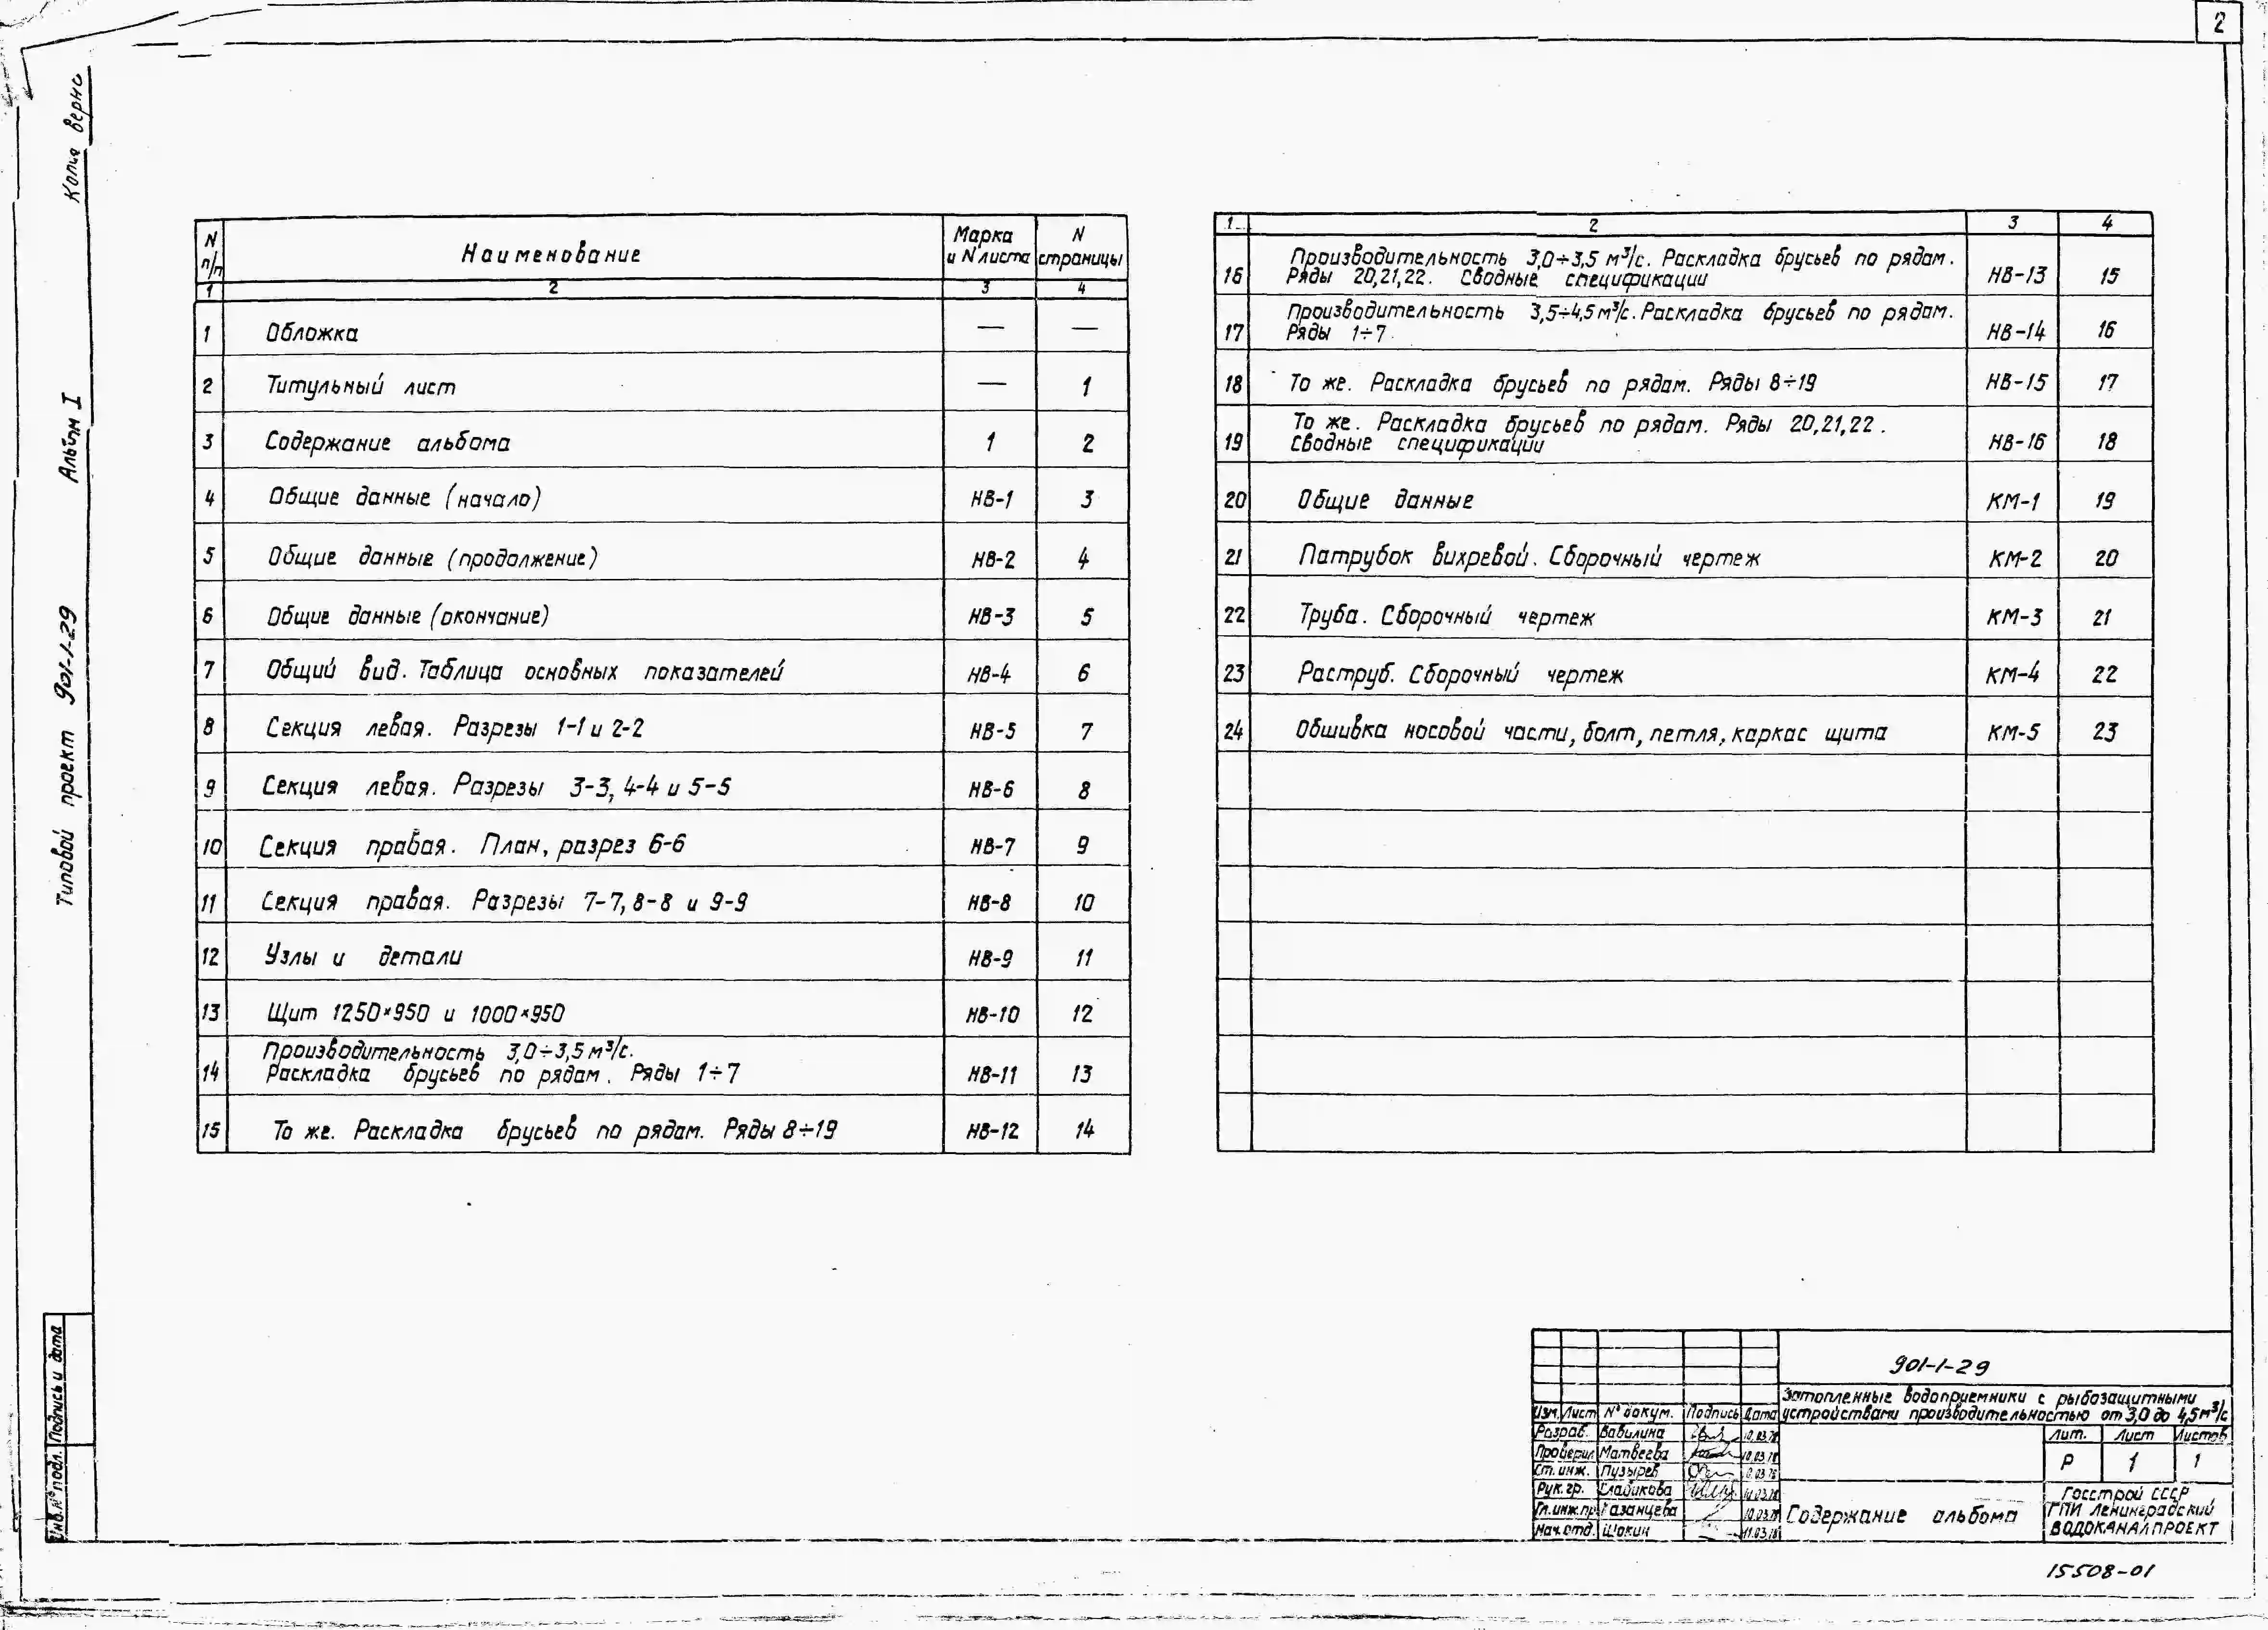 2
Копия верна
Альбом I
Типовой проект 901-1-29
N п/п Наименование Марка и N листа N страницы
1 2 3 4
1 Обложка — —
2 Титульный лист — 1
3 Содержание альбома 1 2
4 Общие данные (начало) НВ-1 3
5 Общие данные (продолжение) НВ-2 4
6 Общие данные (окончание) НВ-3 5
7 Общий вид. Таблица основных показателей НВ-4 6
8 Секция левая. Разрезы 1-1 и 2-2 НВ-5 7
9 Секция левая. Разрезы 3-3, 4-4 и 5-5 НВ-6 8
10 Секция правая. План, разрез 6-6 НВ-7 9
11 Секция правая. Разрезы 7-7, 8-8 и 9-9 НВ-8 10
12 Узлы и детали НВ-9 11
13 Щит 1250×950 и 1000×950 НВ-10 12
Производительность 3,0÷3,5 м³/с.
14 Раскладка брусьев по рядам. Ряды 1÷7 НВ-11 13
15 То же. Раскладка брусьев по рядам. Ряды 8÷19 НВ-12 14
1 2 3 4
Производительность 3,0÷3,5 м³/с. Раскладка брусьев по рядам.
16 Ряды 20,21,22. Сводные спецификации НВ-13 15
Производительность 3,5÷4,5 м³/с. Раскладка брусьев по рядам.
17 Ряды 1÷7 НВ-14 16
18 То же. Раскладка брусьев по рядам. Ряды 8÷19 НВ-15 17
То же. Раскладка брусьев по рядам. Ряды 20,21,22.
19 Сводные спецификации НВ-16 18
20 Общие данные КМ-1 19
21 Патрубок вихревой. Сборочный чертеж КМ-2 20
22 Труба. Сборочный чертеж КМ-3 21
23 Раструб. Сборочный чертеж КМ-4 22
24 Обшивка носовой части, болт, петля, каркас щита КМ-5 23
Инв.№ подл. Подпись и дата
901-1-29
Затопленные водоприемники с рыбозащитными
устройствами производительностью от 3,0 до 4,5 м³/с
Изм. Лист № докум. Подпись Дата
Разраб. Вавилина
Проверил Матвеева
Ст. инж. Пузырев
Рук. гр. Сладикова
Гл.инж.пр. Казанцева
Нач. отд. Шокин
Лит. Лист Листов
Р 1 1
Содержание альбома
Госстрой СССР
ГПИ Ленинградский
ВОДОКАНАЛПРОЕКТ
15508-01